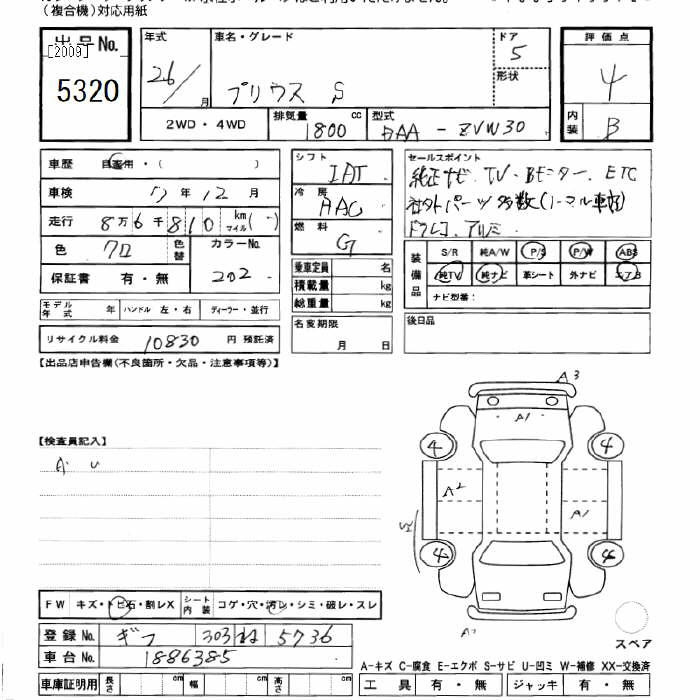 （複合機）対応用紙
出品No.
[2009]
5320
年式 26/ 月
車名・グレード プリウス S
ドア 5
形状
2WD・4WD
排気量 1800 cc
型式 DAA - ZVW30
評価点 4
内装 B
車歴 自家用・( )
車検 年 12 月
走行 8万6千810 km マイル( )
色 クロ 色替
カラーNo. 202
保証書 有・無
モデル年式 年 ハンドル 左・右 ディーラー・並行
リサイクル料金 10830 円 預託済
シフト IAT
冷房 AAC
燃料 G
乗車定員 名
積載量 kg
総重量 kg
名変期限 月 日
セールスポイント
純正ナビ、TV、Bモニター、ETC
社外パーツ多数(ノーマル車高)
ドラレコ、アルミ
装備品
S/R 純A/W P/S P/W ABS
純TV 純ナビ 革シート 外ナビ エアB
ナビ型番：
後日品
【出品店申告欄(不良箇所・欠品・注意事項等)】
【検査員記入】
A U
A3
A1
4 4
A2
A1
4 4
スペア
FW キズ・トビ石・割レX シート内装 コゲ・穴・汚レ・シミ・破レ・スレ
登録No. ギフ 303 ね 5736
車台No. 1886385
車庫証明用 長さ cm 幅 cm 高さ cm
A-キズ C-腐食 E-エクボ S-サビ U-凹ミ W-補修 XX-交換済
工具 有・無 ジャッキ 有・無